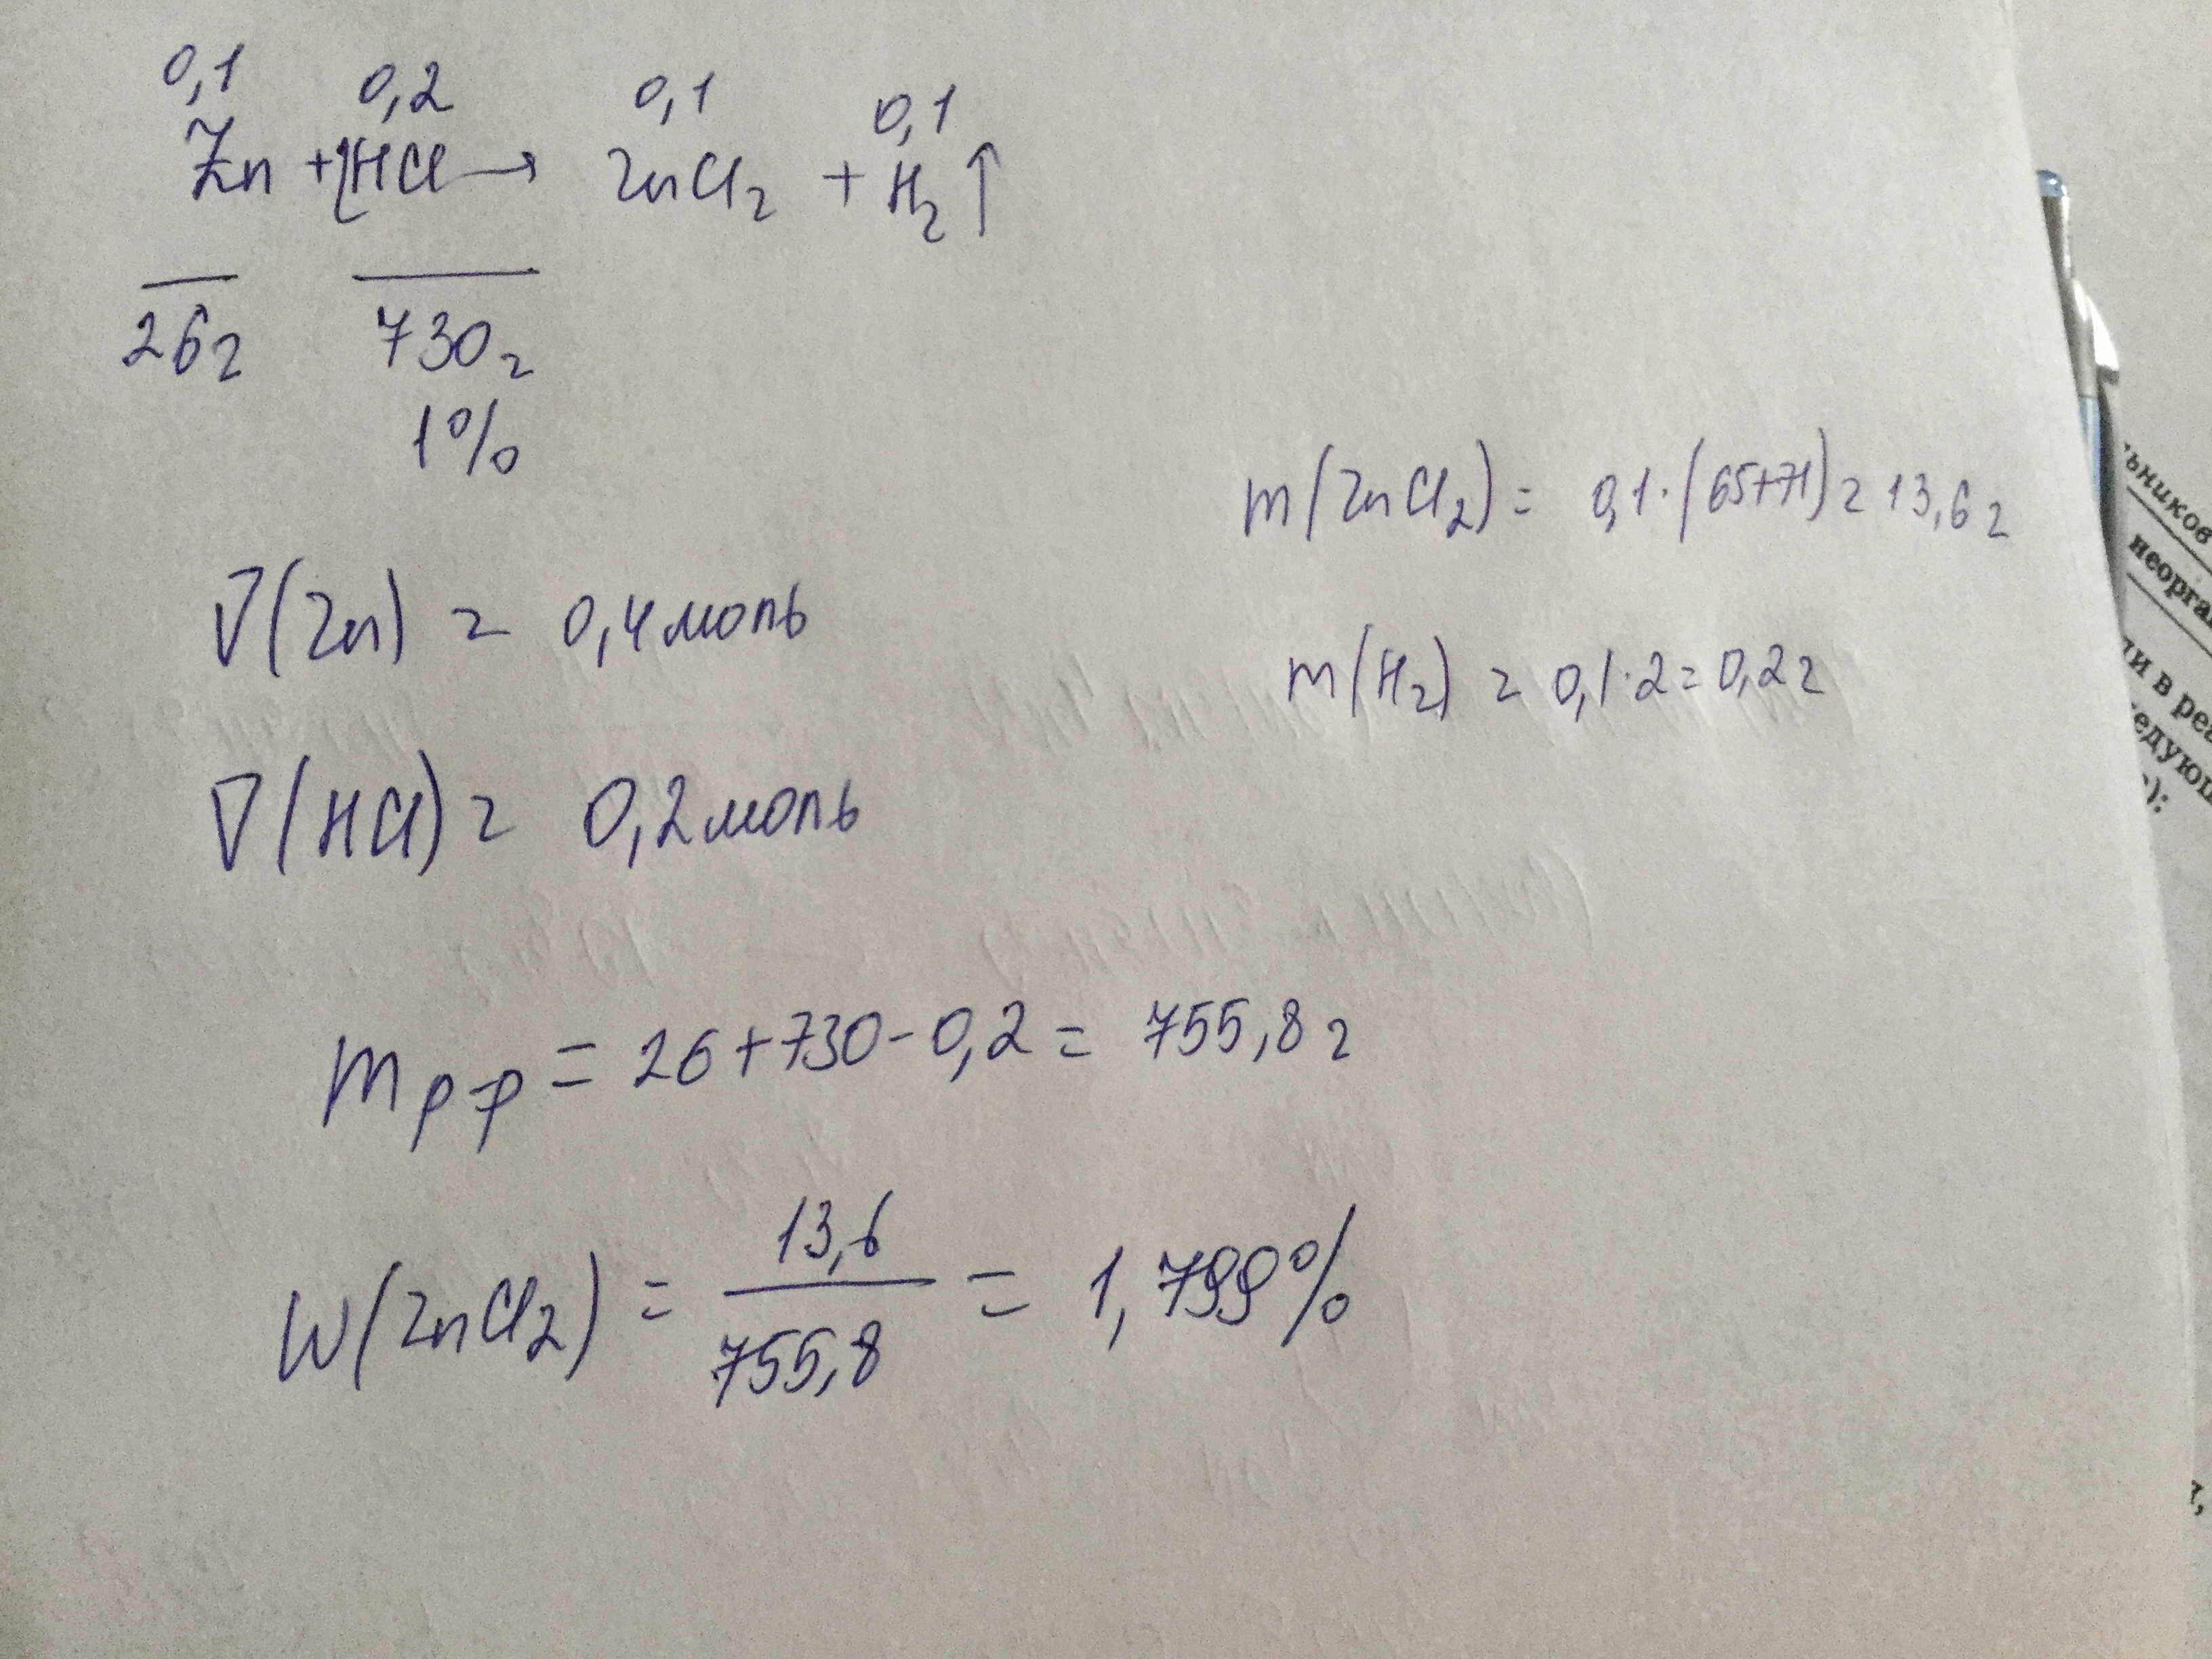 0,1 0,2 0,1 0,1
Zn + 2HCl → ZnCl₂ + H₂↑
26г 730г
1%
m(ZnCl₂) = 0,1·(65+71) = 13,6г
ν(Zn) = 0,4моль
m(H₂) = 0,1·2=0,2г
ν(HCl) = 0,2моль
mр-р = 26+730-0,2 = 755,8г
W(ZnCl₂) = 13,6 / 755,8 = 1,799%
ьников
неорга
ли в реа
едующ
):